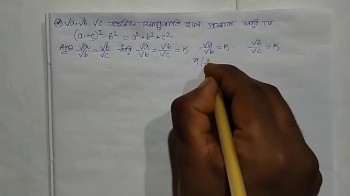 √a, √b, √c ক্রমিক সমানুপাতি হলে প্রমাণ করি যে
(a+c)² - b² = a² + b² + c²
√a/√b = √b/√c ধরি √a/√b = √b/√c = K √a/√b = K √b/√c = K